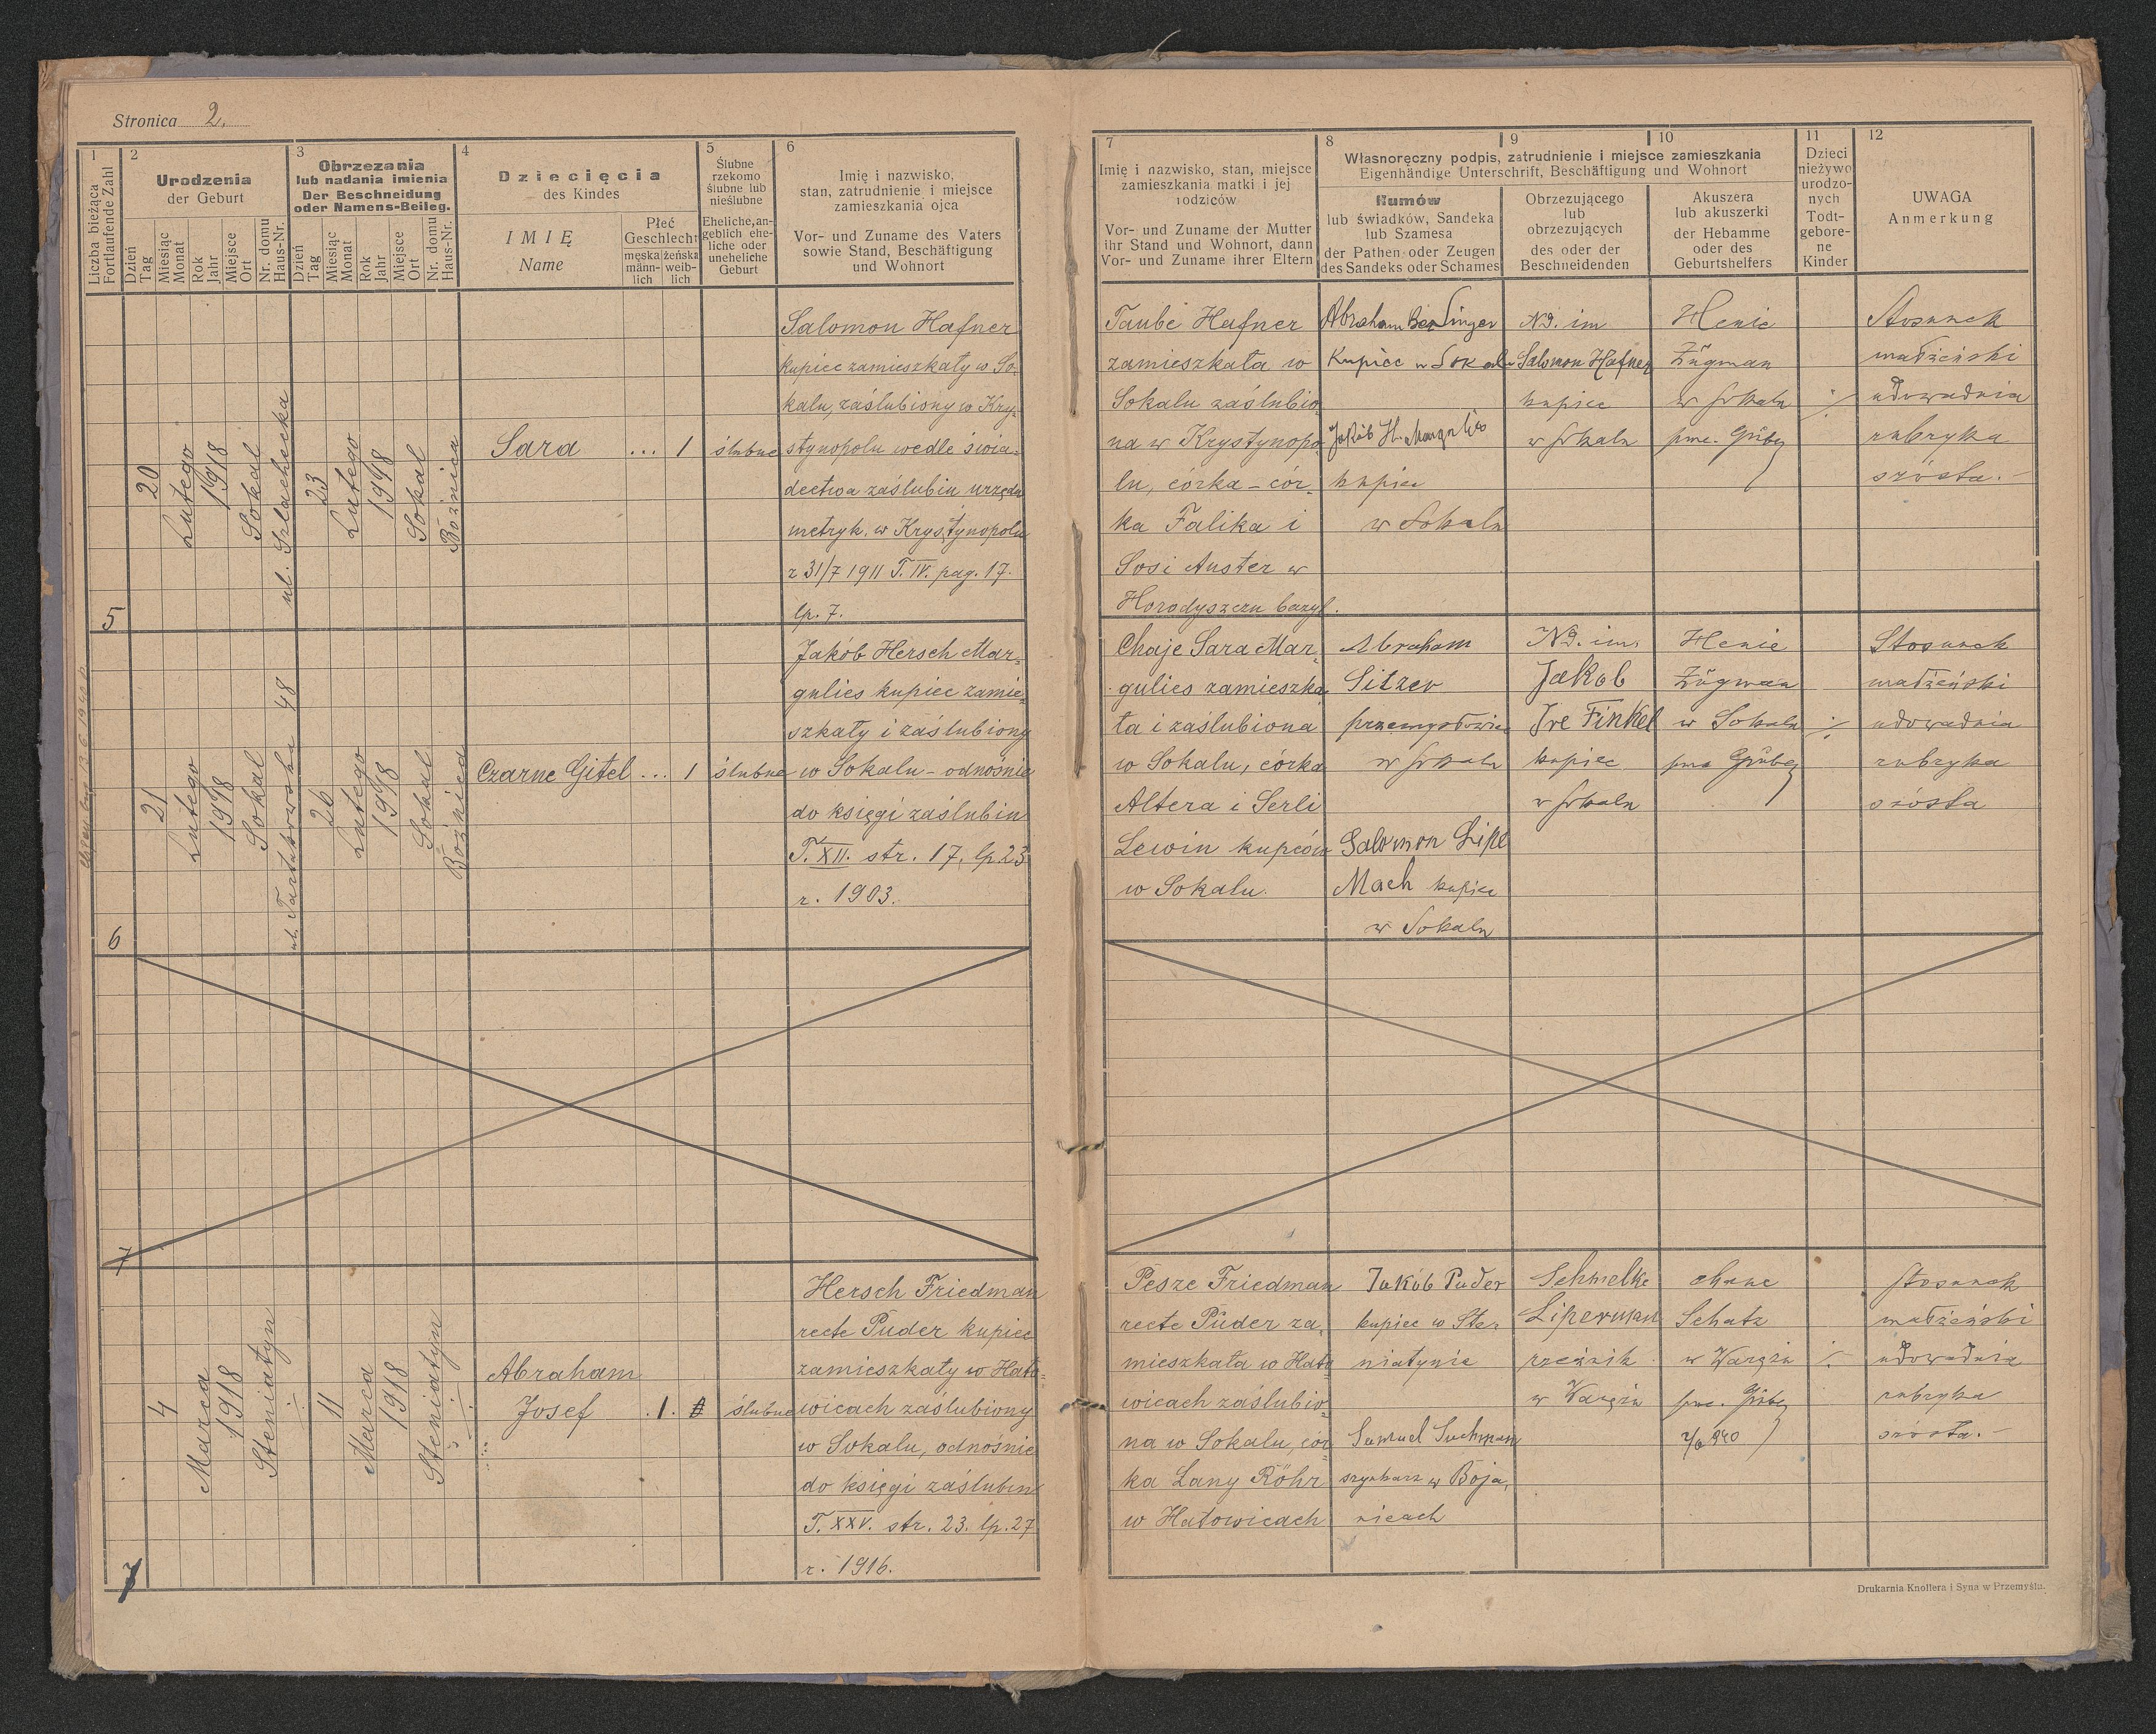 Stronica 2.
1
Liczba bieżąca
Fortlaufende Zahl
2
Urodzenia
der Geburt
Dzień
Tag
Miesiąc
Monat
Rok
Jahr
Miejsce
Ort
Nr. domu
Haus-Nr.
3
Obrzezania
lub nadania imienia
Der Beschneidung
oder Namens-Beileg.
Dzień
Tag
Miesiąc
Monat
Rok
Jahr
Miejsce
Ort
Nr. domu
Haus-Nr.
4
Dziecięcia
des Kindes
IMIĘ
Name
Płeć
Geschlecht
męska
männ-
lich
żeńska
weib-
lich
5
Ślubne
rzekomo
ślubne lub
nieślubne
Eheliche, an-
geblich ehe-
liche oder
uneheliche
Geburt
6
Imię i nazwisko,
stan, zatrudnienie i miejsce
zamieszkania ojca
Vor- und Zuname des Vaters
sowie Stand, Beschäftigung
und Wohnort
7
Imię i nazwisko, stan, miejsce
zamieszkania matki i jej
rodziców
Vor- und Zuname der Mutter
ihr Stand und Wohnort, dann
Vor- und Zuname ihrer Eltern
8
9
10
Własnoręczny podpis, zatrudnienie i miejsce zamieszkania
Eigenhändige Unterschrift, Beschäftigung und Wohnort
Kumów
lub świadków, Sandeka
lub Szamesa
der Pathen oder Zeugen
des Sandeks oder Schames
Obrzezującego
lub
obrzezujących
des oder der
Beschneidenden
Akuszera
lub akuszerki
der Hebamme
oder des
Geburtshelfers
11
Dzieci
nieżywo
urodzo-
nych
Todt-
gebore-
ne
Kinder
12
UWAGA
Anmerkung
5
20
Lutego
1918
Sokal
ul. Szlachecka
23
Lutego
1918
Sokal
Bóżnica
Sara
... 1
ślubne
Salomon Hafner
kupiec zamieszkały w So-
kalu, zaślubiony w Kry-
stynopolu wedle świa-
dectwa zaślubin urzędu
metryk. w Krystynopolu
z 31/7 1911 T. IV. pag. 17.
lp. 7.
Taube Hafner
zamieszkała w
Sokalu zaślubio-
na w Krystynopo-
lu, córka - cór-
ka Falika i
Sosi Auster w
Horodyszczu bazyl.
Abraham Ber Singer
Kupiec w Sokalu
Jakób H. Margulies
kupiec
w Sokalu
Nd. im.
Salomon Hafner
kupiec
w Sokalu
Henie
Zügman
w Sokalu
Stosunek
małżeński
udowadnia
rubryka
szósta. -
6
21
Lutego
1918
Sokal
ul. Tartakowska 48
26
Lutego
1918
Sokal
Bóżnica
Czarne Gitel
... 1
ślubne
Jakób Hersch Mar-
gulies kupiec zamie-
szkały i zaślubiony
w Sokalu - odnośnie
do księgi zaślubin
T. XII. str. 17, lp. 23
r. 1903.
Chaje Sara Mar-
gulies zamieszka-
ła i zaślubiona
w Sokalu, córka
Altera i Serli
Lewin kupców
w Sokalu.
Abraham
Sitzer
przemysłowiec
w Sokalu
Salomon Lipe
Mach kupiec
w Sokalu
Nd. im.
Jakob
Ire Finkel
kupiec
w Sokalu
Henie
Zügman
w Sokalu
Stosunek
małżeński
udowadnia
rubryka
szósta
7
7
4
Marca
1918
Steniatyn
11
Marca
1918
Steniatyn
Abraham
Josef
. 1 .
ślubne
Hersch Friedman
recte Puder kupiec
zamieszkały w Hato-
wicach zaślubiony
w Sokalu, odnośnie
do księgi zaślubin
T. XXV. str. 23. lp. 27
r. 1916.
Pesze Friedman
recte Puder za-
mieszkała w Hato
wicach zaślubio-
na w Sokalu, cór
ka Lany Röhr
w Hatowicach
Jakób Puder
kupiec w Ste-
niatynie
Samuel Suchman
szynkarz w Boja-
nicach
Schmelke
Liperman
rzeźnik
w Warężu
Chane
Schatz
w Warężu
Stosunek
małżeński
udowadnia
rubryka
szósta. -
Drukarnia Knollera i Syna w Przemyślu.